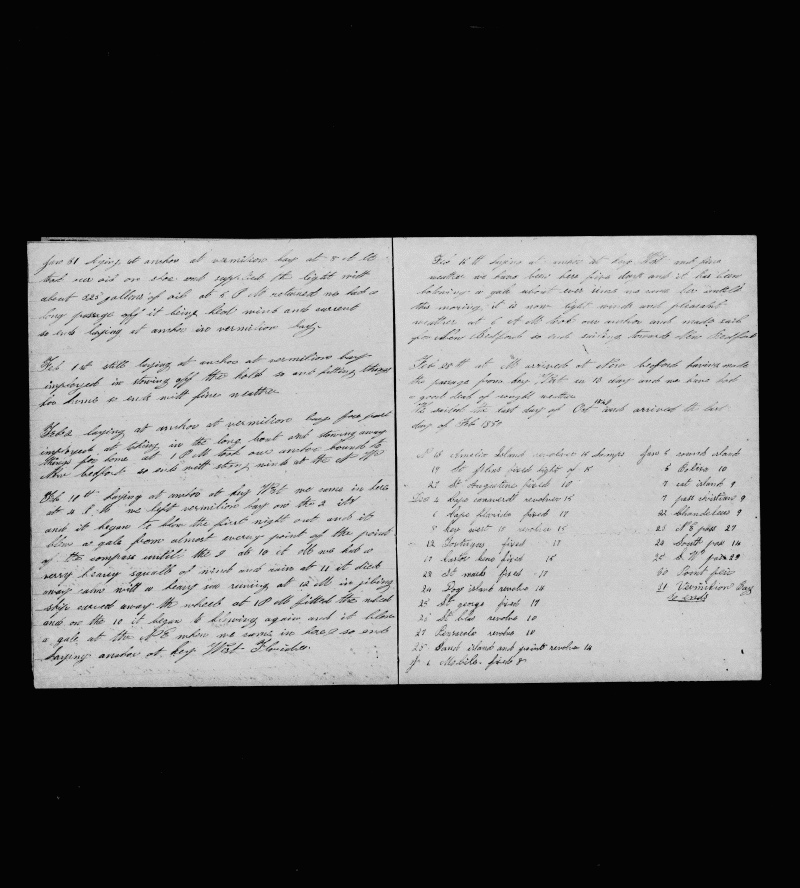 Jan 31 lying at anchor at vermilion bay at 8 A M
took our oil on shore and supplied the light with
about 325 gallons of oil at 5 P M returned we had a
long passage off it being head wind and current
so ends laying at anchor in vermilion bay.
Feb 1st still laying at anchor at vermilion bay
imployed in stowing off the hold so and fitting things
for home so ends with fine weather
Feb 2 laying at anchor at vermilion bay
imployed at taking in the long boat and stowing away
things for home at 1 P M took our anchor bound to
New bedford so ends with strong winds at the N W
Feb 10th laying at anchor at key West we came in here
at 4 P. M we left vermilion bay on the 2
and it began to blow the first night out and it
blew a gale from almost every point of the point
of the compass untill the 9 at 10 A M we had a
verry heavy squall of wind and rain at 11 it died
away calm with a heavy sea runing at 12 M in jibing
ship carried away the wheel at 1 P M fitted the wheel
and on the 10 it began to blowing again and it blew
a gale at the N E when we came in here so ends
laying anchor at key West Florida.
Feb 15th laying at anchor at key West and fine
weather we have been here five days and it has been
blowing a gale about ever since we came here untill
this morning, it is now light winds and pleasant
weather at 6 A M took our anchor and made sail
for New Bedford so ends sailing towards New Bedford
Feb 28th at M arrived at New bedford having made
the passage from key West in 13 day and we have had
a good deal of rough weather
We sailed the last day of Oct and arrived the last
day of Feb
N 18 Amelia Island revolver 14 lamps
19 St Johns fixed light of 15
21 St Augustine fixed 10
Dec 4 Cape canaverel revolver 15
6 Cape florida fixed 17
7 key west revolve 15
12 Tortugas fixed 17
17 fixed 15
23 St marks fixed 17
24 Dog island revolve 14
25 St george fixed 17
26 St blas revolve 10
27 Pensacola revolve 10
28 Sand island and point revolve 14
J 1 Mobile fixed 8
Jan 5 round island
6 Biloxi 10
7 cat island 9
7 pass christian 9
22 Chandeliers 9
23 N E pass 27
24 South pass 14
25 S. W pass 29
30 Point fair
31 Vermilion Bay
So ends